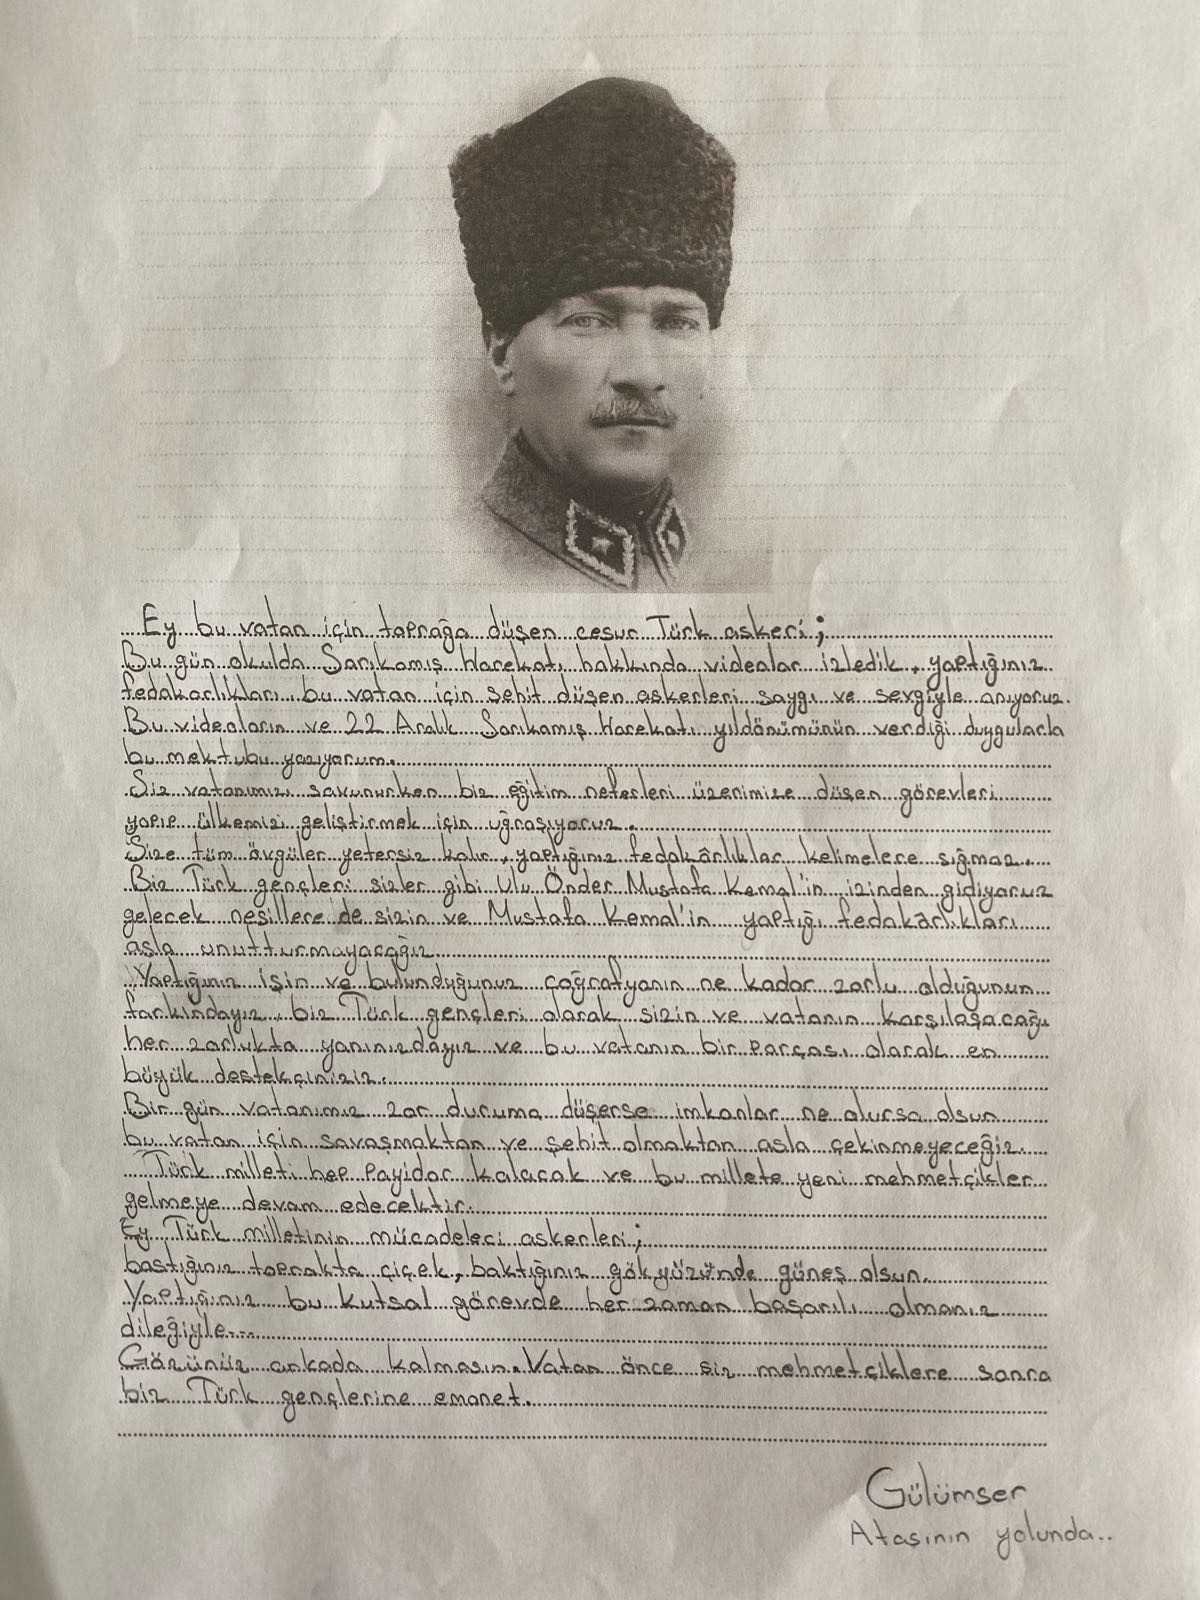 Ey bu vatan için toprağa düşen cesur Türk askeri;
Bu gün okulda Sarıkamış Harekatı hakkında videolar izledik, yaptığınız
fedakarlıkları bu vatan için şehit düşen askerleri saygı ve sevgiyle anıyoruz.
Bu videoların ve 22 Aralık Sarıkamış Harekatı yıldönümünün verdiği duygularla
bu mektubu yazıyorum.
Siz vatanımızı savunurken biz eğitim neferleri üzerimize düşen görevleri
yapıp ülkemizi geliştirmek için uğraşıyoruz.
Size tüm övgüler yetersiz kalır, yaptığınız fedakârlıklar kelimelere sığmaz.
Biz Türk gençleri sizler gibi Ulu Önder Mustafa Kemal'in izinden gidiyoruz
gelecek nesillere de sizin ve Mustafa Kemal'in yaptığı fedakârlıkları
asla unutturmayacağız.
Yaptığınız işin ve bulunduğunuz coğrafyanın ne kadar zorlu olduğunun
farkındayız, biz Türk gençleri olarak sizin ve vatanın karşılaşacağı
her zorlukta yanınızdayız ve bu vatanın bir parçası olarak en
büyük destekçiniziz.
Bir gün vatanımız zor duruma düşerse imkanlar ne olursa olsun
bu vatan için savaşmaktan ve şehit olmaktan asla çekinmeyeceğiz.
Türk milleti hep payidar kalacak ve bu millete yeni mehmetçikler
gelmeye devam edecektir.
Ey Türk milletinin mücadeleci askerleri;
bastığınız toprakta çiçek, baktığınız gökyüzünde güneş olsun.
Yaptığınız bu kutsal görevde her zaman başarılı olmanız
dileğiyle...
Gözünüz arkada kalmasın. Vatan önce siz mehmetçiklere sonra
biz Türk gençlerine emanet.
Gülümser
Atasının yolunda..